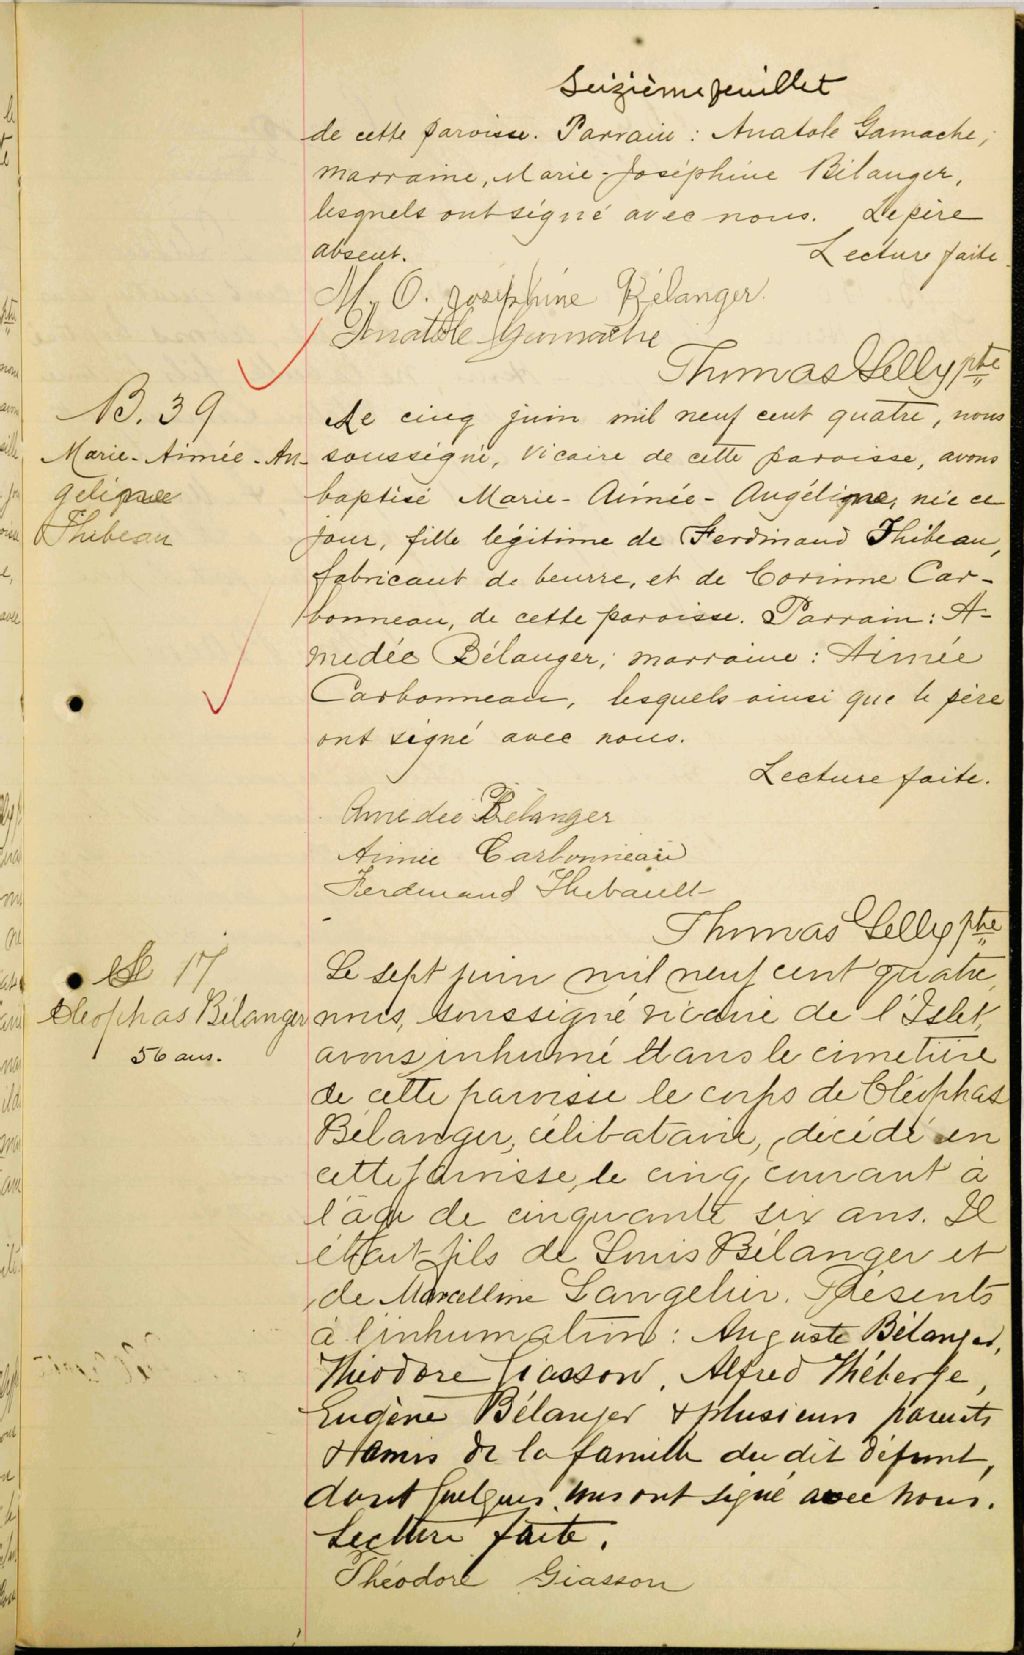 Seizième feuillet
de cette paroisse. Parrain : Anatole Gamache;
marraine, Marie-Joséphine Bélanger,
lesquels ont signé avec nous. Le père
absent. Lecture faite.
M. O. Joséphine Bélanger.
Anatole Gamache
Thomas Gelly ptre
B. 39
Marie-Aimée-An-
gélique
Thibeau
Le cinq juin mil neuf cent quatre, nous
soussigné, vicaire de cette paroisse, avons
baptisé Marie-Aimée-Angélique, née ce
jour, fille légitime de Ferdinand Thibeau,
fabricant de beurre, et de Corinne Car-
bonneau, de cette paroisse. Parrain : A-
médée Bélanger; marraine : Aimée
Carbonneau, lesquels ainsi que le père
ont signé avec nous.
Lecture faite.
Amedée Bélanger
Aimée Carbonneau
Ferdinand Thibault
Thomas Gelly ptre
S 17
Cléophas Bélanger
56 ans.
Le sept juin mil neuf cent quatre,
nous, soussigné vicaire de l'Islet,
avons inhumé dans le cimetière
de cette paroisse le corps de Cléophas
Bélanger, célibataire, décédé en
cette paroisse, le cinq courant à
l'âge de cinquante six ans. Il
était fils de Louis Bélanger et
de Marcelline Langelier. Présents
à l'inhumation : Auguste Bélanger,
Théodore Giasson, Alfred Théberge,
Eugène Bélanger & plusieurs parents
& amis de la famille du dit défunt,
dont quelques uns ont signé avec nous.
Lecture faite.
Théodore Giasson